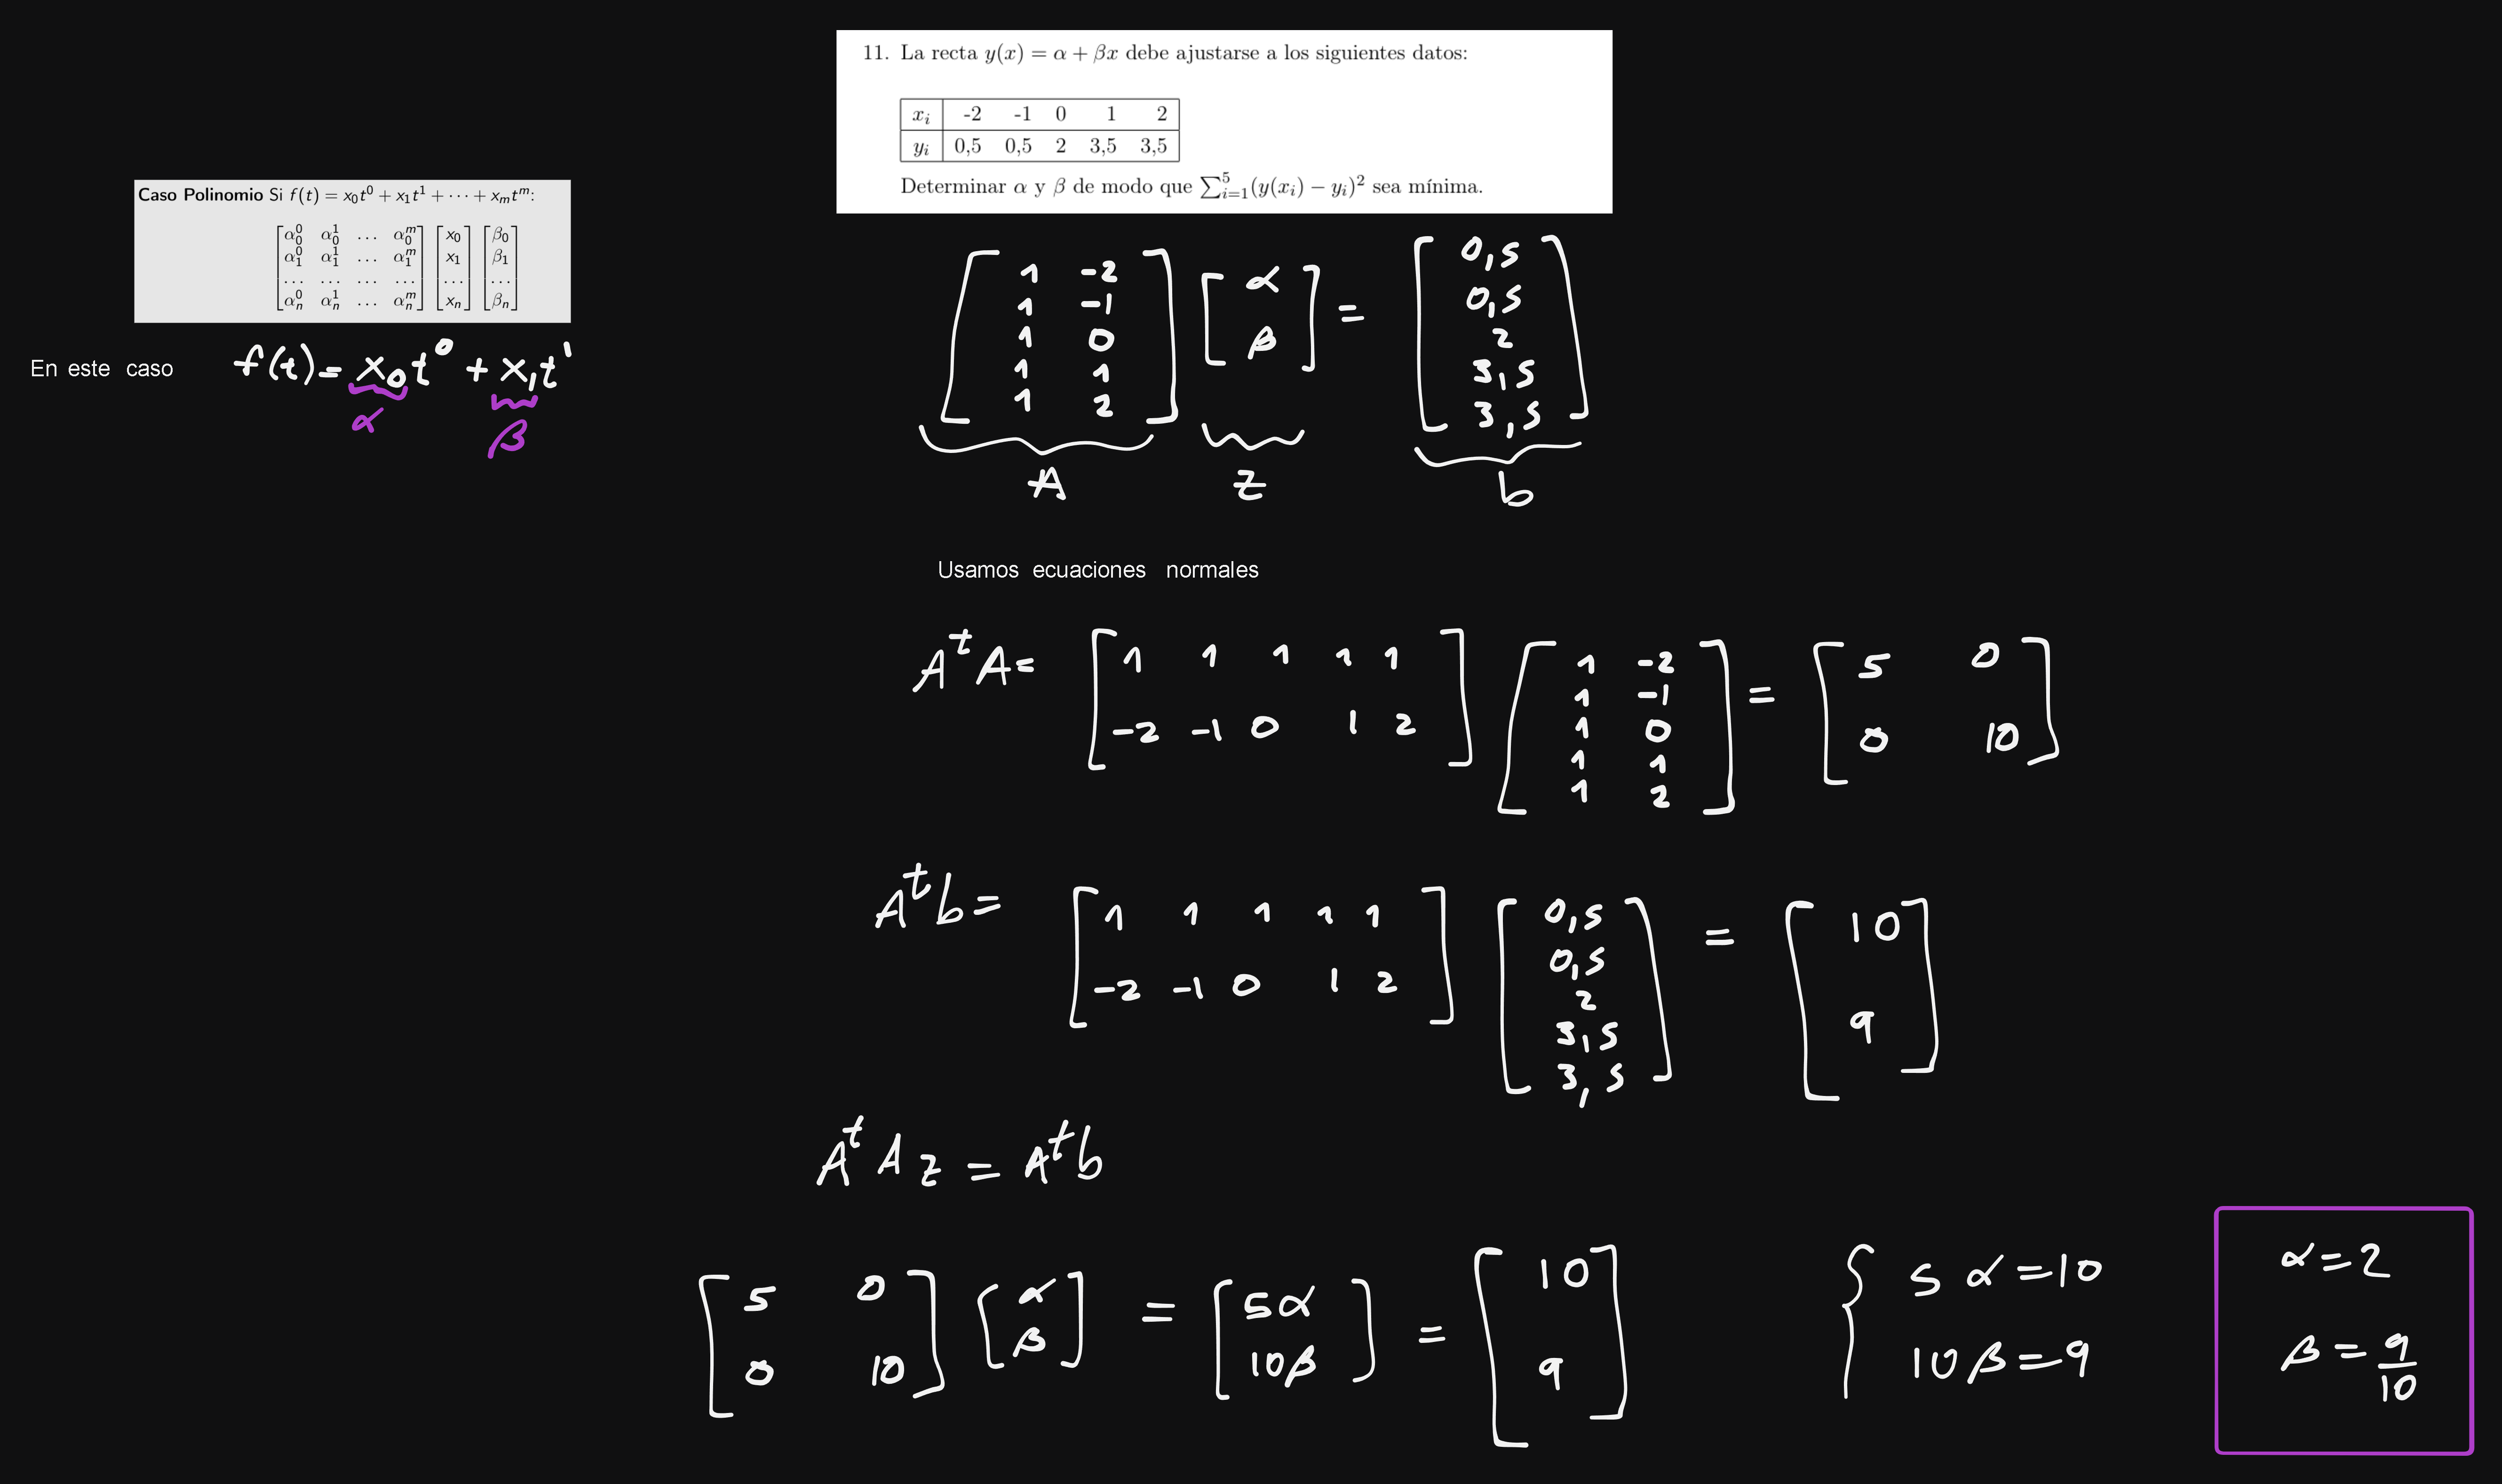 11. La recta y(x) = α + βx debe ajustarse a los siguientes datos:
x_i -2 -1 0 1 2
y_i 0,5 0,5 2 3,5 3,5
Determinar α y β de modo que ∑_{i=1}^{5}(y(x_i) − y_i)^2 sea mínima.
Caso Polinomio Si f(t) = x_0t^0 + x_1t^1 + ⋯ + x_mt^m:
[α_0^0 α_0^1 … α_0^m] [x_0] [β_0]
[α_1^0 α_1^1 … α_1^m] [x_1] [β_1]
[… … … …] […] […]
[α_n^0 α_n^1 … α_n^m] [x_n] [β_n]
En este caso f(t) = x_0 t^0 + x_1 t^1
α β
[1 -2] [α] = [0,5]
[1 -1] [β] [0,5]
[1 0] [2]
[1 1] [3,5]
[1 2] [3,5]
A z b
Usamos ecuaciones normales
A^t A = [1 1 1 1 1] [1 -2] = [5 0]
[-2 -1 0 1 2] [1 -1] [0 10]
[1 0]
[1 1]
[1 2]
A^t b = [1 1 1 1 1] [0,5] = [10]
[-2 -1 0 1 2] [0,5] [9]
[2]
[3,5]
[3,5]
A^t A z = A^t b
[5 0] [α] = [5α] = [10] { 5α = 10
[0 10] [β] [10β] [9] 10β = 9
α = 2
β = 9/10